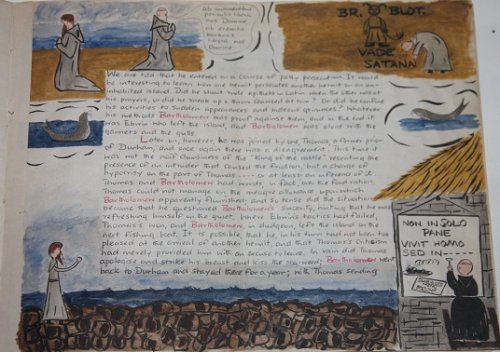 BR. BLOT.
VADE
SATANN
We are told that he entered on a course of petty persecution. It would
be interesting to learn how one hermit persecutes another hermit on an un-
inhabited island. Did he shout rude epithets in Latin when the other was at
his prayers, or did he sneak up a
his activities to sudden appearances and hideous grimaces? Whatever
his methods Bartholomew was proof against them, and in the end it
was Ebwin who left the island, and Bartholomew was alone with the
gannets and the gulls.
Later on, however, he was joined by one Thomas a former prior
of Durham, and once again there was a disagreement. This time it
was not the raw clumsiness of the "king of the castle" resenting the
presence of an intruder that caused the friction, but a charge of
hypocrisy on the part of Thomas --- or at least an inference of it.
Thomas and Bartholomew had words, in fact, over the food ration.
Thomas could not manage on the meagre allowance upon which
Bartholomew apparently flourished, and so tense did the situation
become that he questioned Bartholomew's sincerity, hinting that he was
refreshing himself on the quiet. Where Ebwin's tactics had failed,
Thomas's won, and Bartholomew, in dudgeon, left the island in the
next fishing boat. It is possible, that he, in his turn had not been too
pleased at the arrival of another hermit, and that Thomas's criticism
had merely provided him with an excuse to leave. In vain did Thomas
apologise and strike his breast and kiss the sea-weed; Bartholomew went
back to Durham and stayed there for a year, with Thomas sending
NON IN SOLO
PANE
VIVIT HOMO
SED IN----